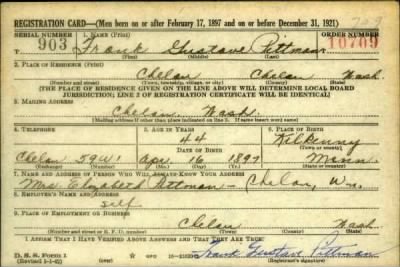 REGISTRATION CARD—(Men born on or after February 17, 1897 and on or before December 31, 1921)
SERIAL NUMBER 1. NAME (Print) ORDER NUMBER
903 Frank Gustave Pittman 10709
(First) (Middle) (Last)
2. PLACE OF RESIDENCE (Print)
Chelan Chelan Wash
(Number and street) (Town, township, village, or city) (County) (State)
[THE PLACE OF RESIDENCE GIVEN ON THE LINE ABOVE WILL DETERMINE LOCAL BOARD
JURISDICTION; LINE 2 OF REGISTRATION CERTIFICATE WILL BE IDENTICAL]
3. MAILING ADDRESS
Chelan, Wash.
[Mailing address if other than place indicated on line 2. If same insert word same]
4. TELEPHONE 5. AGE IN YEARS 6. PLACE OF BIRTH
44 Kilkenny
DATE OF BIRTH (Town or county)
Chelan 59W1 Apr. 16 1897 Minn.
7. NAME AND ADDRESS OF PERSON WHO WILL ALWAYS KNOW YOUR ADDRESS
Mrs. Elizabeth Pittman — Chelan, Wn.
8. EMPLOYER'S NAME AND ADDRESS
Self
9. PLACE OF EMPLOYMENT OR BUSINESS
Chelan Wash
(Number and street or R. F. D. number) (Town) (County) (State)
I AFFIRM THAT I HAVE VERIFIED ABOVE ANSWERS AND THAT THEY ARE TRUE.
D. S. S. Form 1 Frank Gustave Pittman
(Revised 1-1-42) (Registrant's signature)